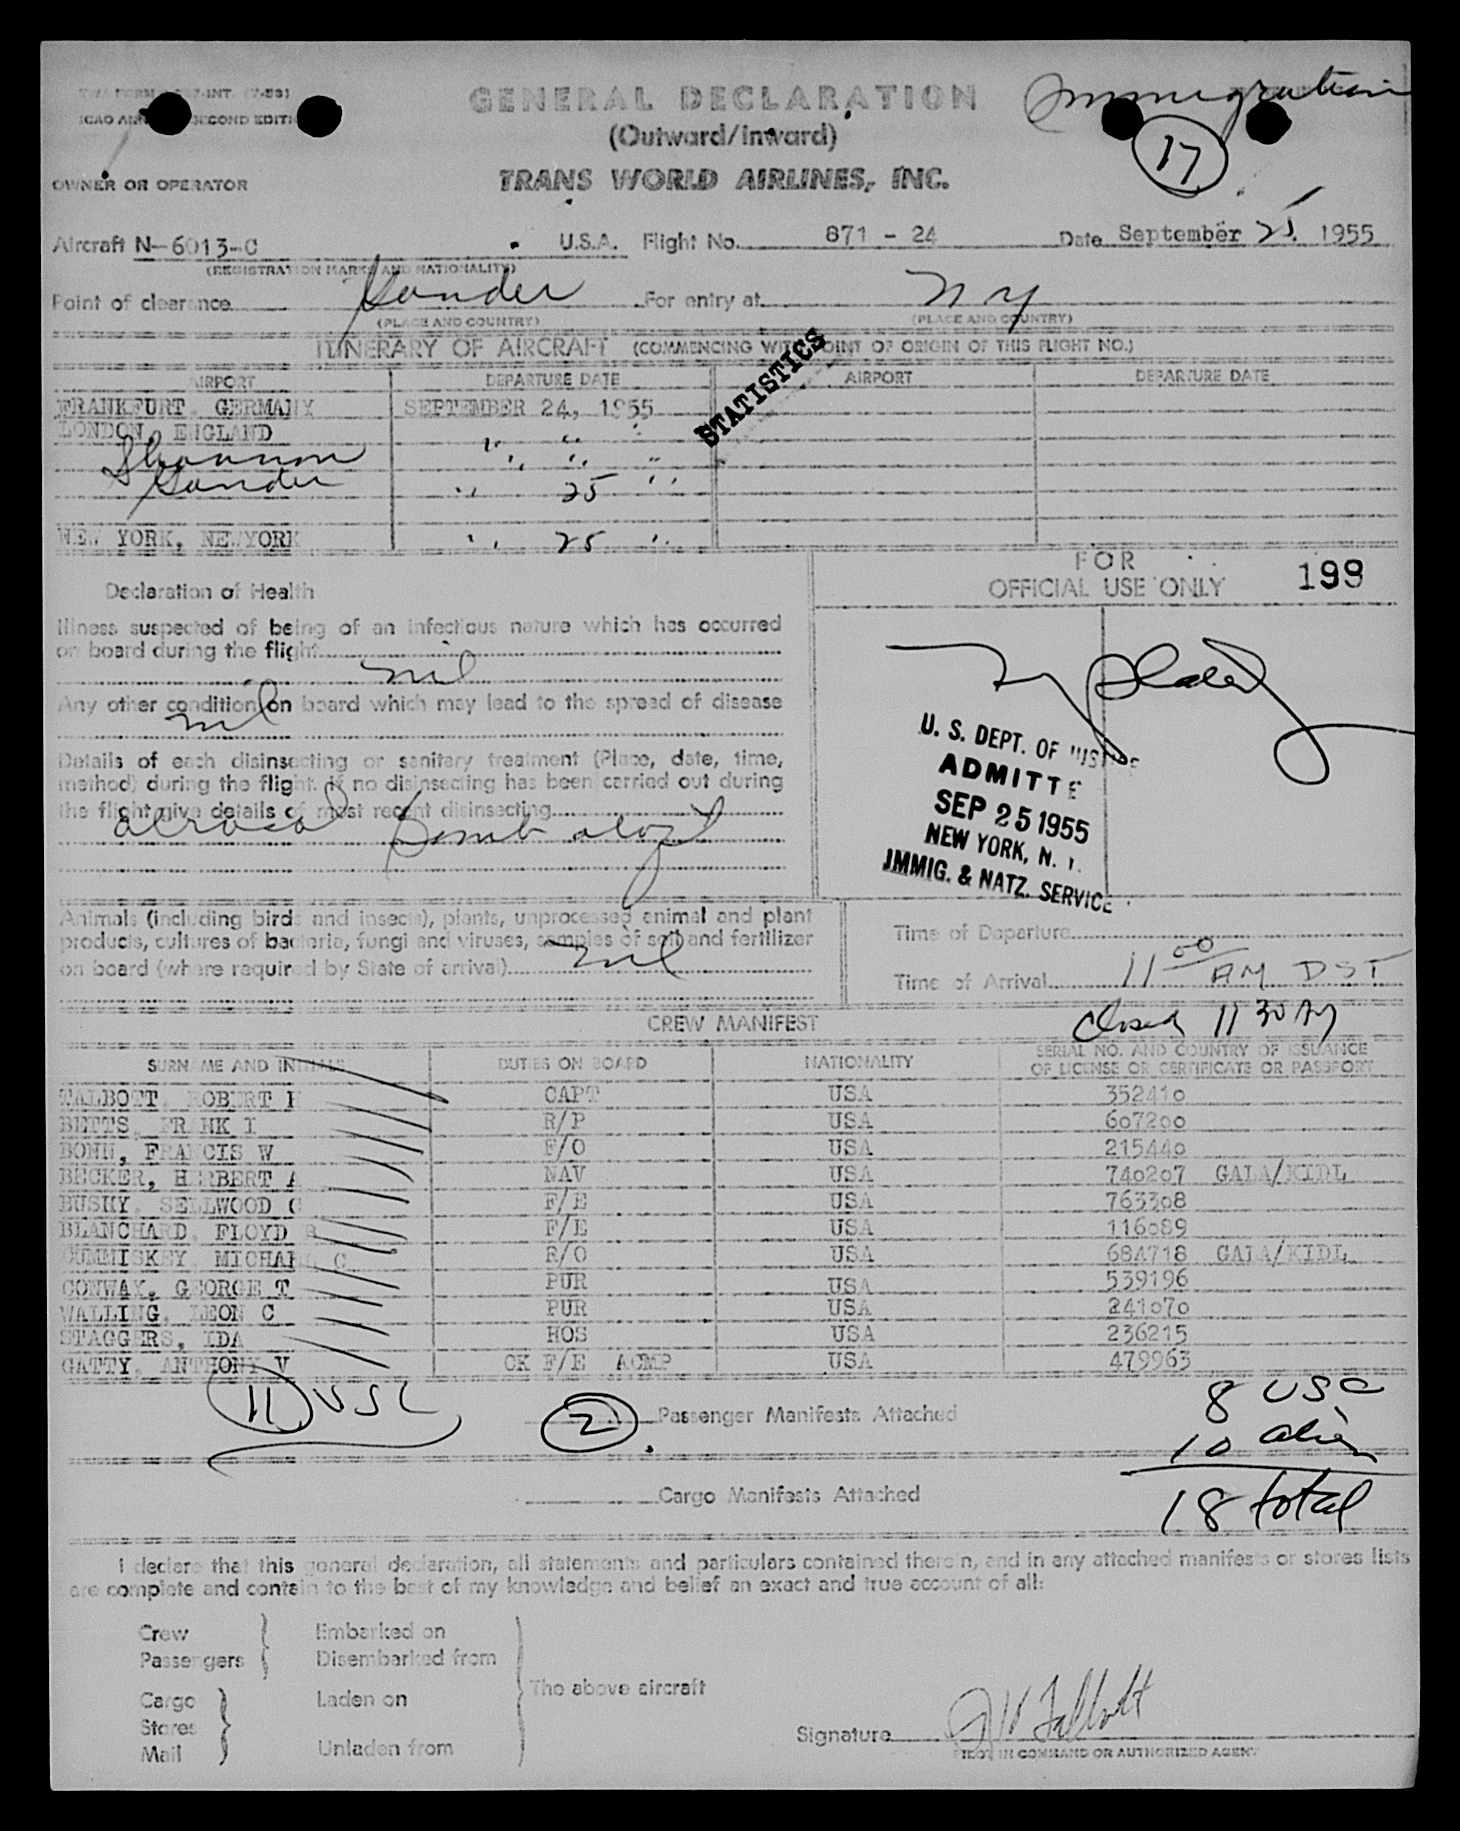 TWA FORM INT. (7-53)
Immigration
GENERAL DECLARATION
ICAO SECOND EDITION
(Outward/Inward)
17
OWNER OR OPERATOR
TRANS WORLD AIRLINES, INC.
Aircraft N-6013-C U.S.A. Flight No. 871 - 24 Date September 25, 1955
(REGISTRATION MARKS AND NATIONALITY)
Point of clearance Gander For entry at N Y
(PLACE AND COUNTRY) (PLACE AND COUNTRY)
ITINERARY OF AIRCRAFT (COMMENCING WITH POINT OF ORIGIN OF THIS FLIGHT NO.)
STATISTICS
AIRPORT DEPARTURE DATE AIRPORT DEPARTURE DATE
FRANKFURT, GERMANY SEPTEMBER 24, 1955
LONDON, ENGLAND " " "
Shannon " " "
Gander " 25 "
NEW YORK, NEWYORK " 25 "
FOR
OFFICIAL USE ONLY 199
Declaration of Health
Illness suspected of being of an infectious nature which has occurred
on board during the flight
nil
Any other condition on board which may lead to the spread of disease
nil
Details of each disinsecting or sanitary treatment (Place, date, time,
method) during the flight. If no disinsecting has been carried out during
the flight give details of most recent disinsecting
aerosol bomb
U. S. DEPT. OF JUSTICE
ADMITTE
SEP 25 1955
NEW YORK, N. Y.
IMMIG. & NATZ. SERVICE
Animals (including birds and insects), plants, unprocessed animal and plant
products, cultures of bacteria, fungi and viruses, samples of soil and fertilizer
on board (where required by State of arrival) nil
Time of Departure
Time of Arrival 11 00 AM DST
closed 11 30 AM
CREW MANIFEST
SURNAME AND INITIALS DUTIES ON BOARD NATIONALITY SERIAL NO. AND COUNTRY OF ISSUANCE
OF LICENSE OR CERTIFICATE OR PASSPORT
TALBOTT, ROBERT H CAPT USA 352410
BETTS, FRANK I R/P USA 607200
BONN, FRANCIS W F/O USA 215440
BECKER, HERBERT A NAV USA 740207 GALA/KIDL
BUSHY, SELLWOOD C F/E USA 763308
BLANCHARD, FLOYD B F/E USA 116089
CUMMISKEY MICHAEL C R/O USA 684718 GALA/KIDL
CONWAY, GEORGE T PUR USA 539196
WALLING, LEON C PUR USA 241070
STAGGERS, IDA HOS USA 236215
GATTY, ANTHONY V CK F/E ACMP USA 479963
11 USC
2 Passenger Manifests Attached
8 USC
10 alien
18 total
Cargo Manifests Attached
I declare that this general declaration, all statements and particulars contained therein, and in any attached manifests or stores lists
are complete and contain to the best of my knowledge and belief an exact and true account of all:
Crew Embarked on
Passengers Disembarked from
The above aircraft
Cargo Laden on
Stores
Mail Unladen from
Signature R H Talbott
PILOT IN COMMAND OR AUTHORIZED AGENT